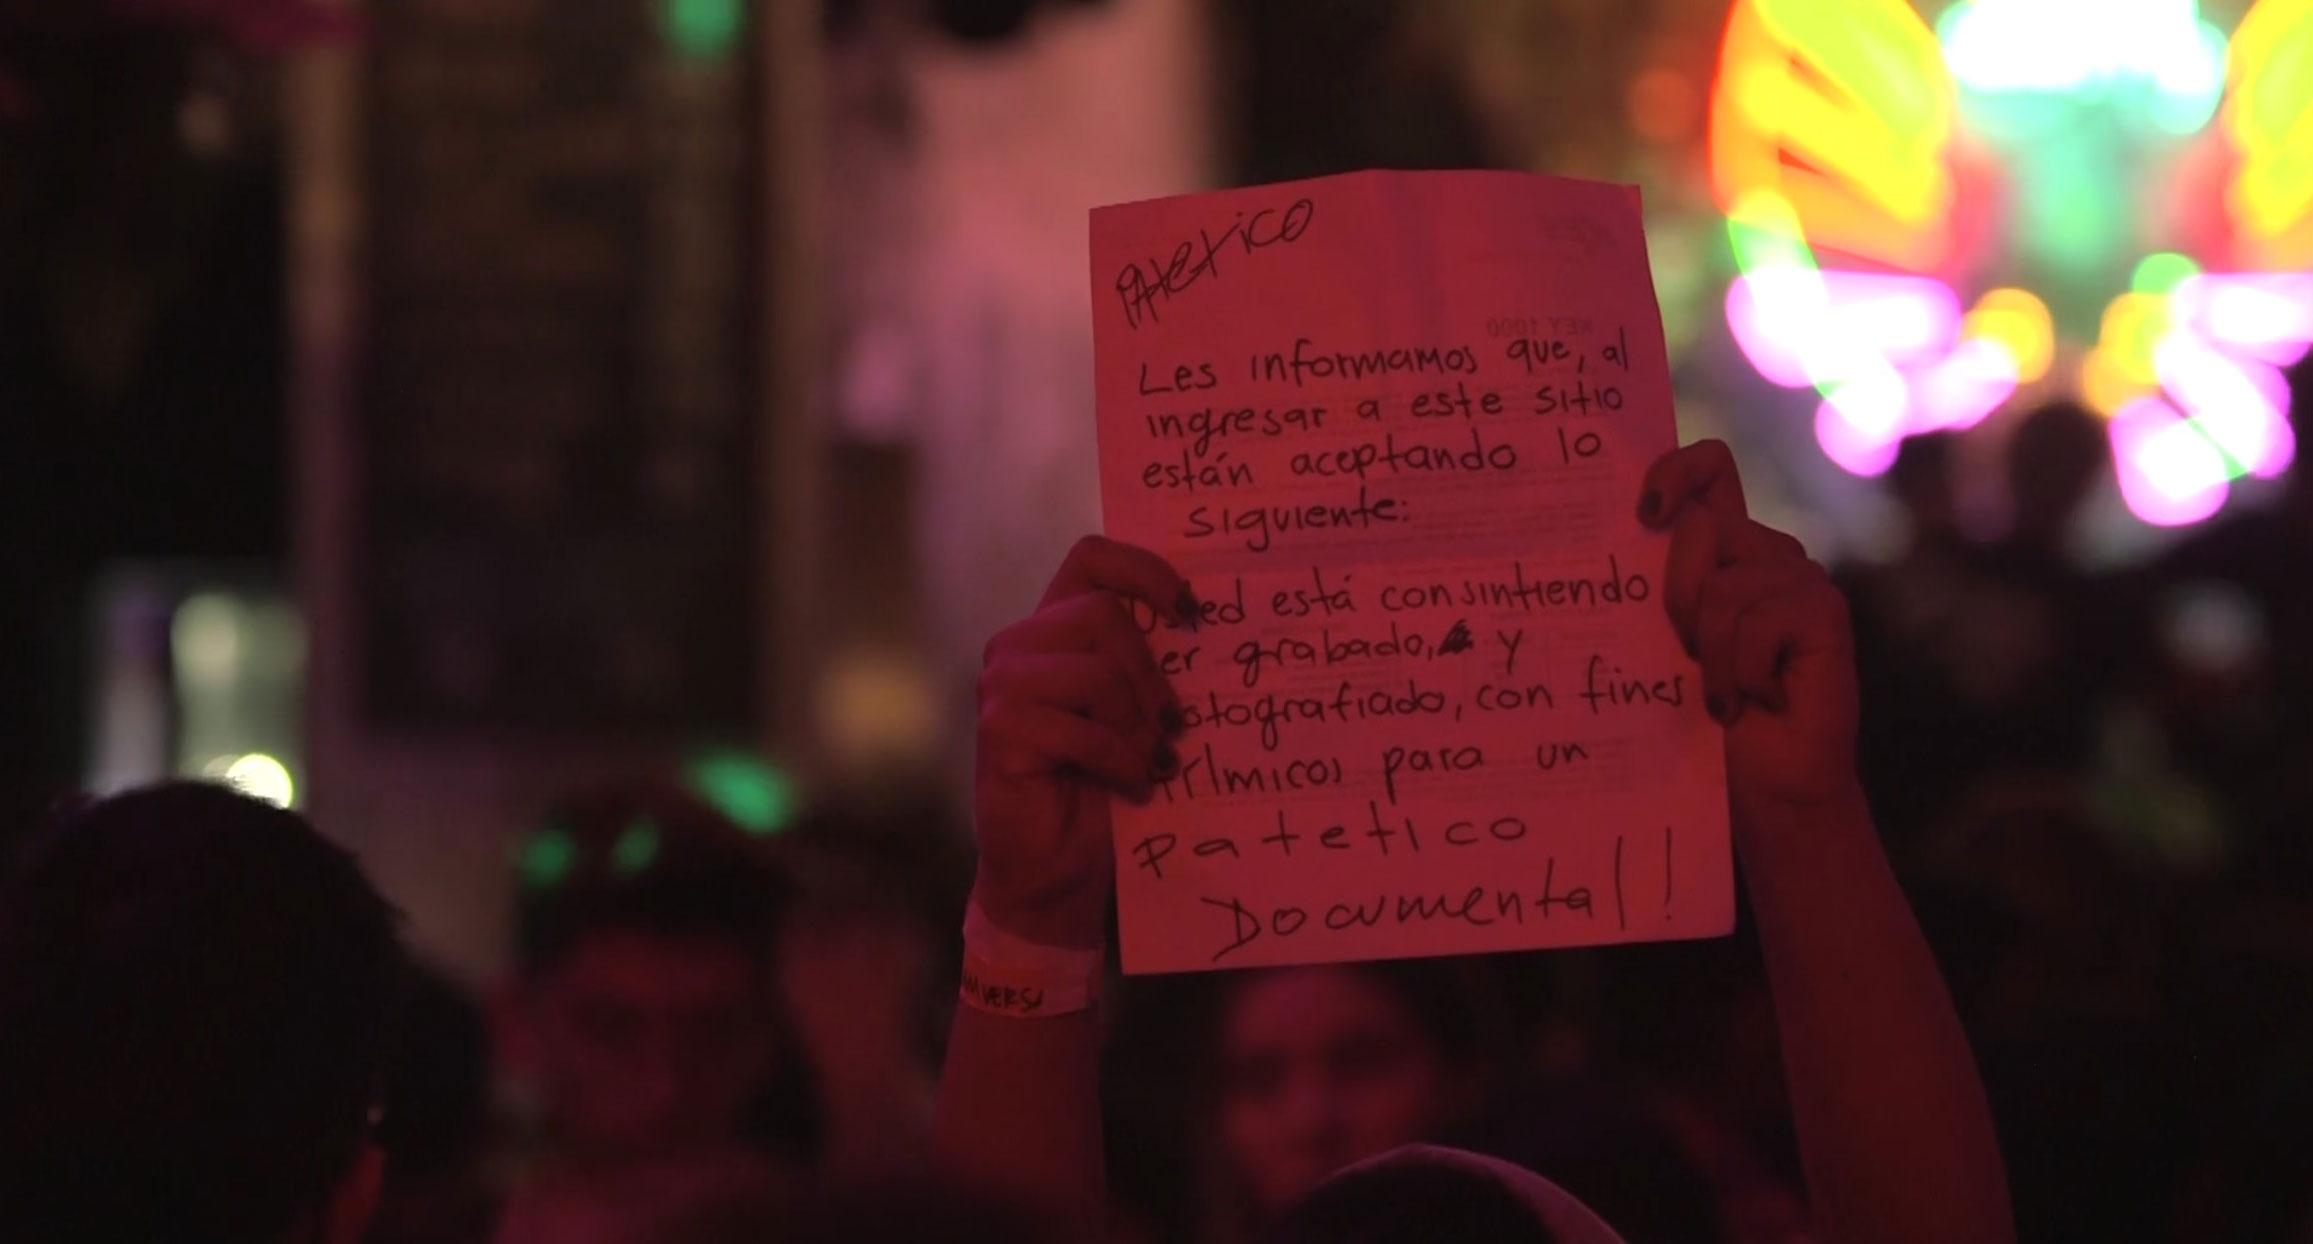 Patetico
Les informamos que, al
ingresar a este sitio
están aceptando lo
siguiente:
Usted está consintiendo
er grabado, y
otografiado, con fines
para un
Patetico
Documental!
KEY 1000